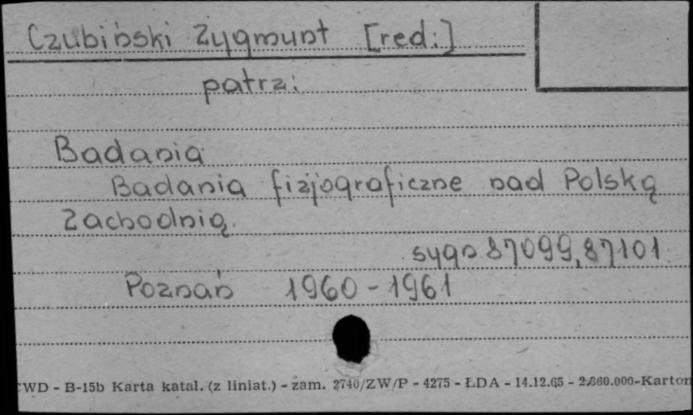 Czubiński Zygmunt [red.]
patrz:
Badania
Badania fizjograficzne nad Polską
Zachodnią.
sygn 87099, 87101
Poznań 1960-1961
CWD - B-15b Karta katal. (z liniat.) - zam. 2740/ZW/P - 4275 - ŁDA - 14.12.65 - 2.860.000-Karton